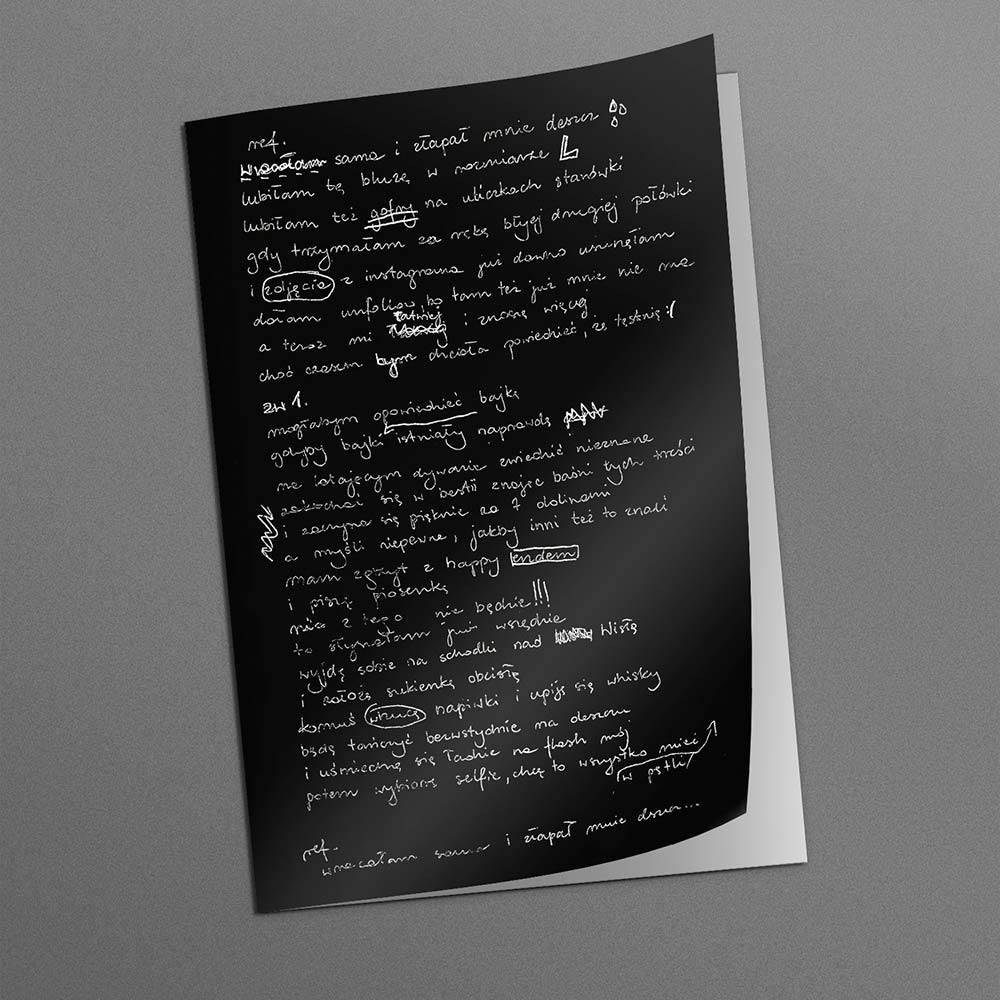 ref.
wracałam sama i złapał mnie deszcz
lubiłam tę bluzę w rozmiarze L
lubiłam też gofry na uliczkach starówki
gdy trzymałam za rękę byłej drugiej połówki
i zdjęcia z instagrama już dawno usunęłam
dałam unfollow bo tam też już mnie nie ma
a teraz mi łatwiej i znoszę więcej
choć czasem bym chciała powiedzieć, że tęsknię :/
zw 1.
mogłabym opowiedzieć bajkę
gdyby bajki istniały naprawdę
na latającym dywanie zwiedzić nieznane
zakochać się w bestii znając baśni tych treści
i zaczyna się pięknie za 7 dolinami
a myśli niepewne, jakby inni też to znali
mam zgrzyt z happy endem
i piszę piosenkę
nic z tego nie będzie!!!
to słyszałam już wszędzie
wyjdę sobie na schodki nad Wisłę
i założę sukienkę obcisłą
komuś wrzucę napiwki i upiję się whisky
będę tańczyć bezwstydnie na deszczu
i uśmiechnę się ładnie na flash mój
potem wybiorę selfie, chcę to wszystko mieć
w pętli
ref.
wracałam sama i złapał mnie deszcz...